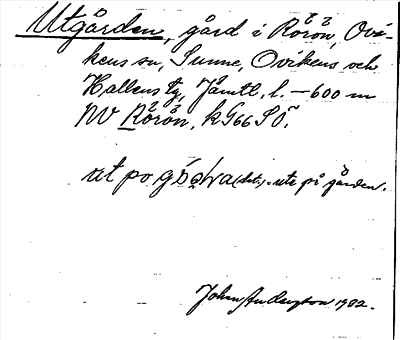 Utgården, gård i Rörön, Ovi-
kens sn, Sunne, Ovikens och
Hallens tg, Jämtl. l. – 600 m
NV Rörön, kG66 SÖ.
ut po (dat). ute på gården.
John Anderzon 1902.